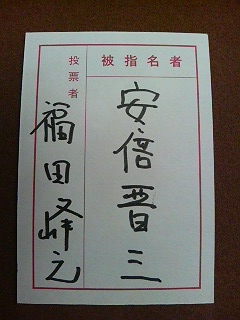 被指名者
安倍晋三
投票者
福田峰之